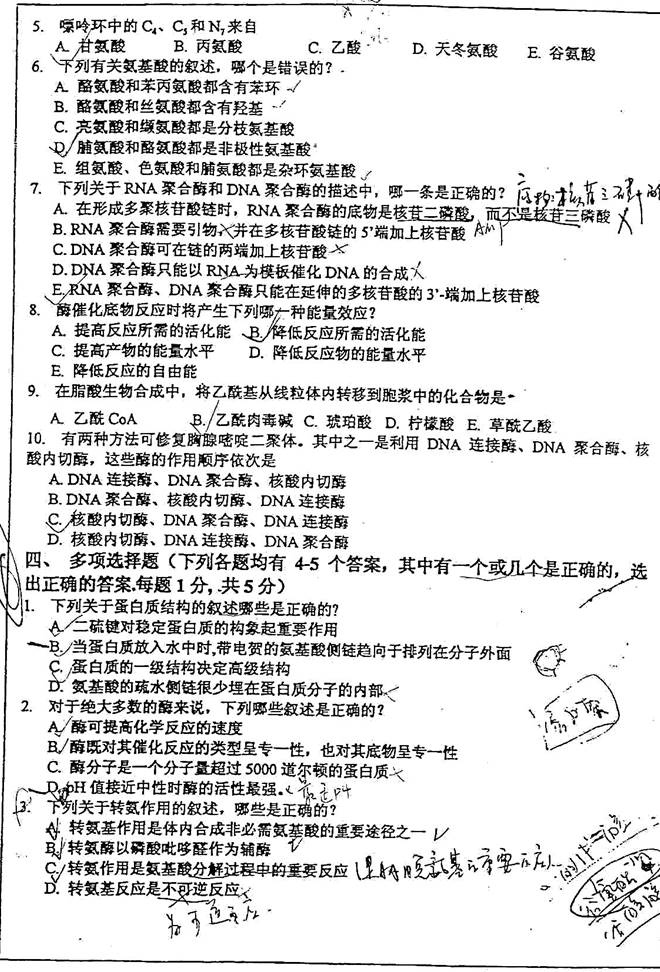 5. 嘌呤环中的 C₄、C₅和 N₇来自
A. 甘氨酸 B. 丙氨酸 C. 乙酸 D. 天冬氨酸 E. 谷氨酸
6. 下列有关氨基酸的叙述，哪个是错误的？
A. 酪氨酸和苯丙氨酸都含有苯环
B. 酪氨酸和丝氨酸都含有羟基
C. 亮氨酸和缬氨酸都是分枝氨基酸
D. 脯氨酸和酪氨酸都是非极性氨基酸
E. 组氨酸、色氨酸和脯氨酸都是杂环氨基酸
7. 下列关于 RNA 聚合酶和 DNA 聚合酶的描述中，哪一条是正确的？
A. 在形成多聚核苷酸链时，RNA 聚合酶的底物是核苷二磷酸，而不是核苷三磷酸
B. RNA 聚合酶需要引物，并在多核苷酸链的 5'端加上核苷酸
C. DNA 聚合酶可在链的两端加上核苷酸
D. DNA 聚合酶只能以 RNA 为模板催化 DNA 的合成
E. RNA 聚合酶、DNA 聚合酶只能在延伸的多核苷酸的 3'-端加上核苷酸
8. 酶催化底物反应时将产生下列哪一种能量效应？
A. 提高反应所需的活化能 B. 降低反应所需的活化能
C. 提高产物的能量水平 D. 降低反应物的能量水平
E. 降低反应的自由能
9. 在脂酸生物合成中，将乙酰基从线粒体内转移到胞浆中的化合物是
A. 乙酰 CoA B. 乙酰肉毒碱 C. 琥珀酸 D. 柠檬酸 E. 草酰乙酸
10. 有两种方法可修复胸腺嘧啶二聚体。其中之一是利用 DNA 连接酶、DNA 聚合酶、核
酸内切酶，这些酶的作用顺序依次是
A. DNA 连接酶、DNA 聚合酶、核酸内切酶
B. DNA 聚合酶、核酸内切酶、DNA 连接酶
C. 核酸内切酶、DNA 聚合酶、DNA 连接酶
D. 核酸内切酶、DNA 连接酶、DNA 聚合酶
四、 多项选择题（下列各题均有 4-5 个答案，其中有一个或几个是正确的，选
出正确的答案.每题 1 分，共 5 分）
1. 下列关于蛋白质结构的叙述哪些是正确的？
A. 二硫键对稳定蛋白质的构象起重要作用
B. 当蛋白质放入水中时,带电贺的氨基酸侧链趋向于排列在分子外面
C. 蛋白质的一级结构决定高级结构
D. 氨基酸的疏水侧链很少埋在蛋白质分子的内部
2. 对于绝大多数的酶来说，下列哪些叙述是正确的？
A. 酶可提高化学反应的速度
B. 酶既对其催化反应的类型呈专一性，也对其底物呈专一性
C. 酶分子是一个分子量超过 5000 道尔顿的蛋白质
D. pH 值接近中性时酶的活性最强。 最适pH
3. 下列关于转氨作用的叙述，哪些是正确的？
A. 转氨基作用是体内合成非必需氨基酸的重要途径之一
B. 转氨酶以磷酸吡哆醛作为辅酶
C. 转氨作用是氨基酸分解过程中的重要反应
D. 转氨基反应是不可逆反应
为可逆反应